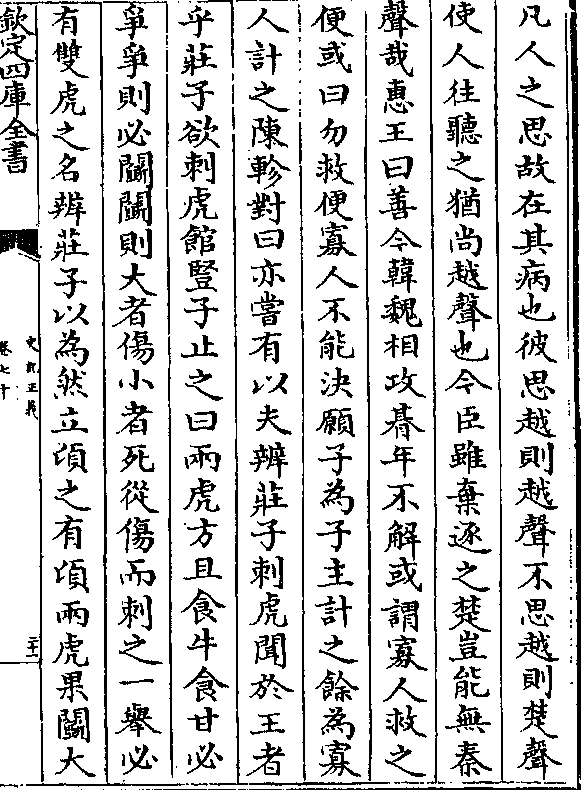 凡人之思故在其病也彼思越則越聲不思越則楚聲
使人往聽之猶尚越聲也今臣雖棄逐之楚豈能無秦
聲哉惠王曰善今韓魏相攻朞年不解或謂寡人救之
便或曰勿救便寡人不能決願子為子主計之餘為寡
人計之陳軫對曰亦嘗有以夫辨莊子刺虎聞於王者
乎莊子欲刺虎館豎子止之曰兩虎方且食牛食甘必
爭爭則必鬬鬬則大者傷小者死從傷而刺之一舉必
有雙虎之名辨莊子以為然立須之有頃兩虎果鬬大
欽定四庫全書
史記正義
卷七十
二十一